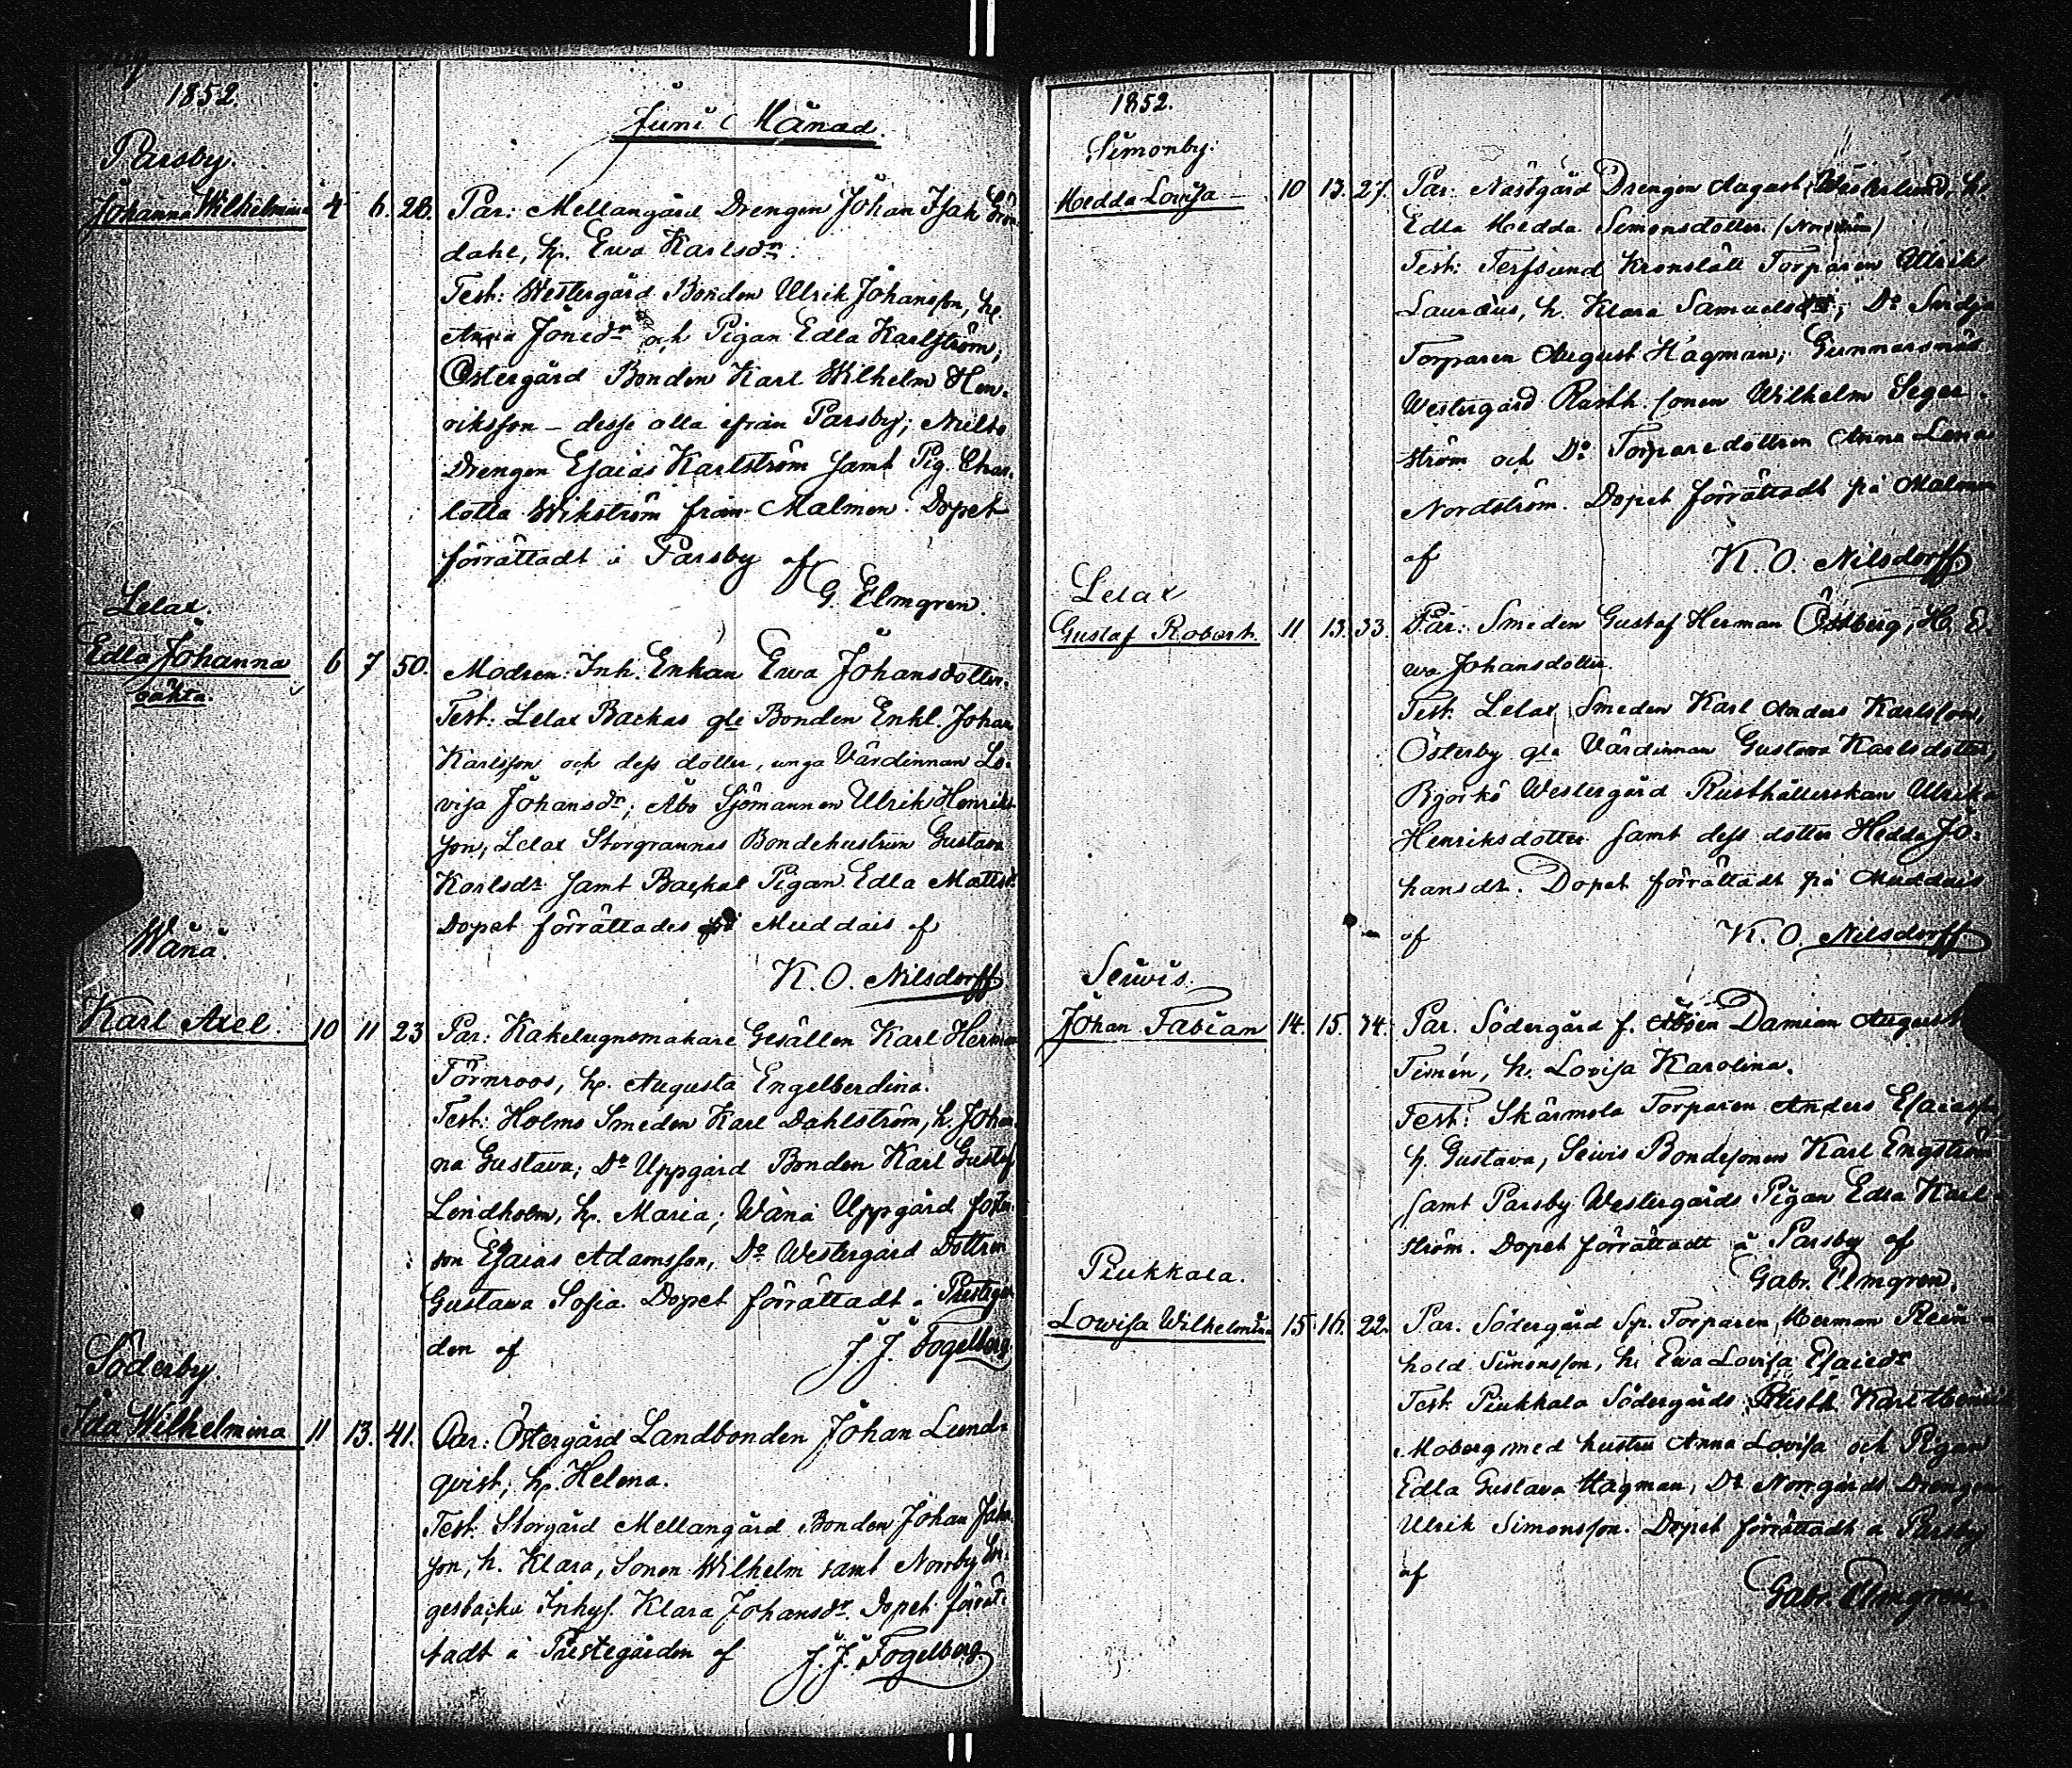 1852.
Juni Månad.
Parsby.
Johanna Wilhelmina 4 6. 28. Par: Mellangård Drengen Johan Isak Grön
dahl, h. Ewa Karlsdr.
Test: Westergård Bonden Ulrik Johansson, h.
Anna Jönsdr och Pigan Edla Karlström,
Östergård Bonden Karl Wilhelm Hen-
riksson – desse alla ifrån Parsby;
Drengen Esaias Karlström samt Pig. Char-
lotta Wikström från Malmen. Dopet
förrättadt i Parsby af
G. Elmgren.
Lelax.
Edla Johanna 6 7 50. Modren: Inh. Enkan Ewa Johansdotter.
oäkta.
Test: Lelax Backas gle Bonden Enkl. Johan
Karlsson och dess dotter, unga Värdinnan Lo-
visa Johansdr; Åbo Sjömannen Ulrik Henriks
son, Lelax Storgrannas Bondehustrun Gustava
Karlsdr samt Backas Pigan Edla Mattsdr
Dopet förrättades på Muddais af
K. O. Nilsdorff.
Wänä.
Karl Axel. 10 11 23 Par: Kakelugnsmakare Gesällen Karl Herman
Törnroos, h. Augusta Engelberdina.
Test: Holmo Smeden Karl Dahlström, h. Johan-
na Gustava; Do Uppgård Bonden Karl Gustaf
Lindholm, h. Maria; Wänä Uppgård foster-
son Esaias Adamsson, Do Westergård Dottren
Gustava Sofia. Dopet förrättadt i Prestegår
den af J. J. Fogelberg.
Söderby.
Ida Wilhelmina 11 13. 41. Par: Östergård Landbonden Johan Lund-
qvist, h. Helena.
Test: Storgård Mellangård Bonden Johan
son, h. Klara, Sonen Wilhelm samt Norrby
gesbacka Inhys. Klara Johansdr. Dopet förrät-
tadt i Prestegården af J. J. Fogelberg.
1852.
Simonby.
Hedda Lovisa 10 13. 27. Par: Nästgård Drengen August Westerlund, h.
Edla Hedda Simonsdotter
Test: Kronstält Torparen Ulrik
Lauræus, h. Klara Samuelsdr; Do
Torparen August Hagman; Gunnarsnäs
Westergård Rusth. sonen Wilhelm Seger-
ström och Do Torparedottren Anna Lena
Nordström. Dopet förrättadt på Malmen
af K. O. Nilsdorff.
Lelax
Gustaf Robert. 11 13. 33. Par: Smeden Gustaf Herman Östberg, H. E-
wa Johansdotter.
Test. Lelax, Smeden Karl Anders Karlsson,
Österby gla Värdinnan Gustava Karlsdotter,
Bjorkö Westergård Rusthållerskan Ulrika
Henriksdotter samt dess dotter Hedda Jo-
hansdr. Dopet förrättadt på Muddais
af K. O. Nilsdorff
Seivis.
Johan Fabian 14. 15. 34. Par. Södergård f. Damian August
Timén, h. Lovisa Karolina.
Test: Skärmola Torparen Anders Esaiasson
h. Gustava, Seivis Bondesonen Karl Engström
samt Parsby Westergårds Pigan Edla Karl-
ström. Dopet förrättadt i Parsby af
Gabr. Elmgren.
Piukkala.
Lowisa Wilhelmina 15. 16. 22. Par. Södergård Sp. Torparen Herman Rein-
hold Simonsson, h. Ewa Lovisa Esaiedr
Test. Piukkala Södergårds Rusth. Karl
Moberg med hustru Anna Lovisa och Pigan
Edla Gustava Hagman, Do Norrgårds Drengen
Ulrik Simonsson. Dopet förrättadt i Parsby
af
Gabr. Elmgren.